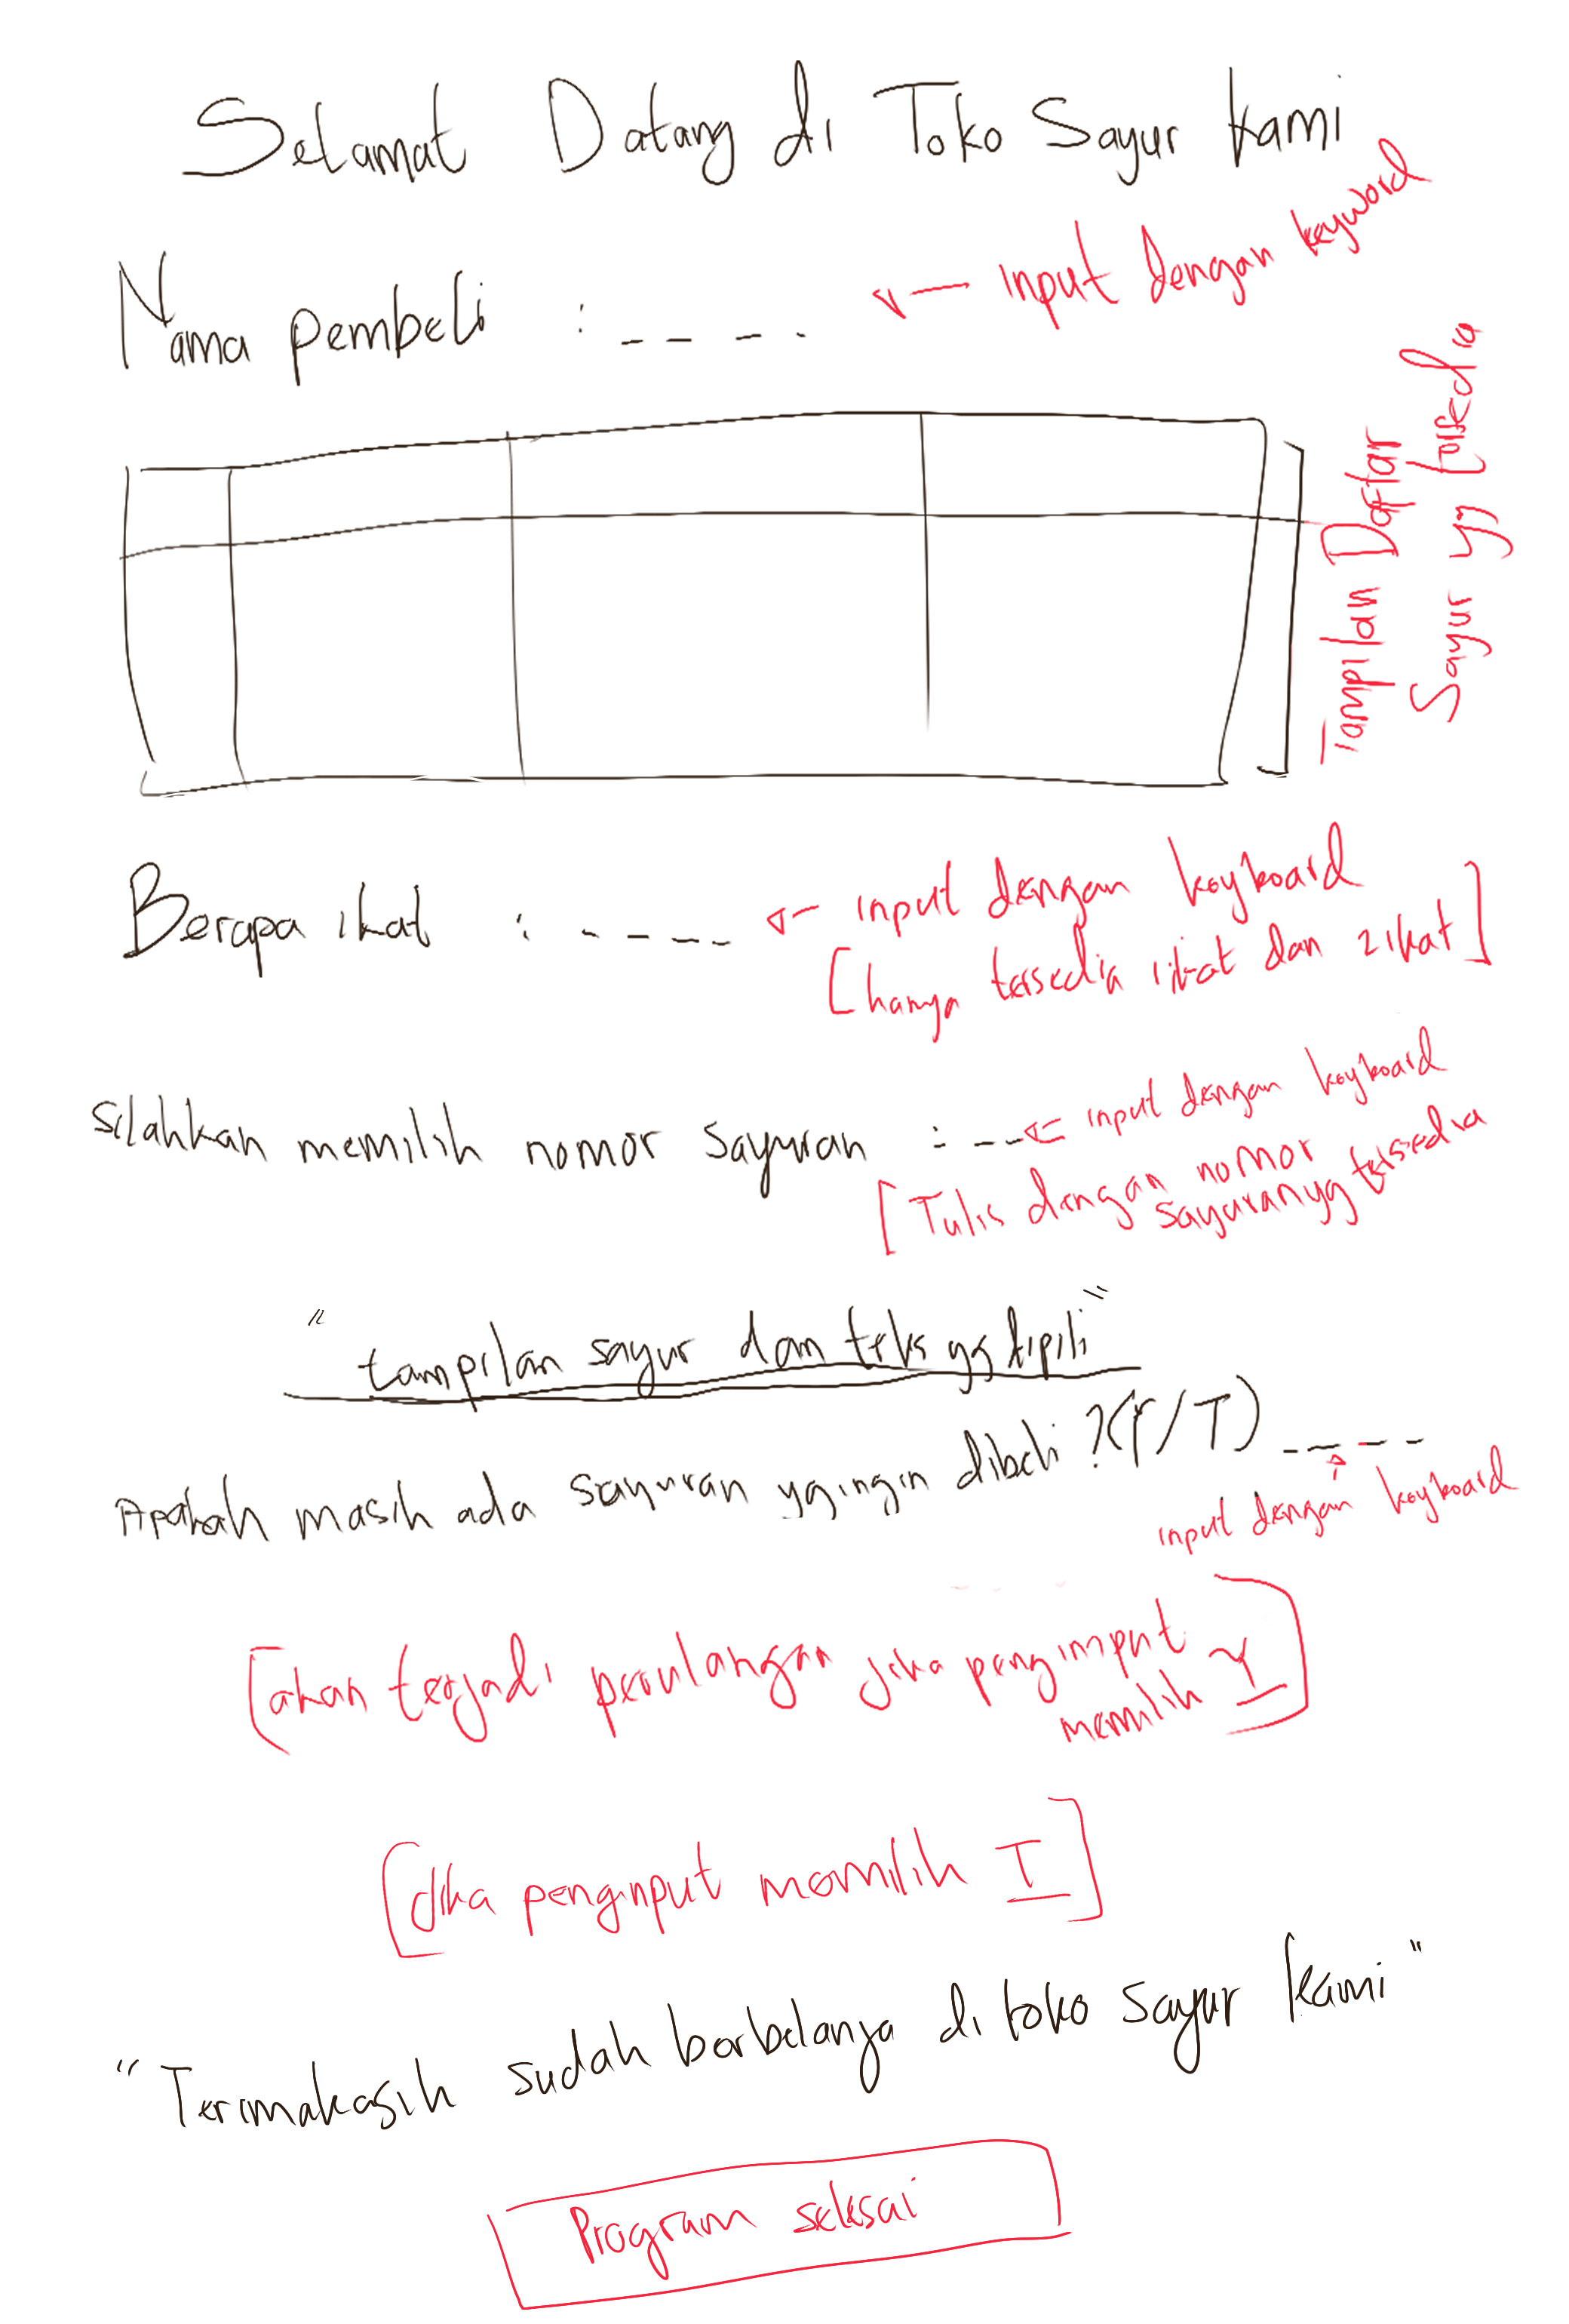 Selamat Datang di Toko Sayur kami
Nama pembeli : ---- ← input dengan keyword
Tampilan Daftar
Sayur yg tersedia
Berapa ikat : ----- ← input dengan keyboard
[hanya tersedia 1 ikat dan 2 ikat]
Silahkan memilih nomor sayuran : --- ← input dengan keyboard
[Tulis dengan nomor
sayuran yg tersedia
"tampilan sayur dan teks yg dipili"
Apakah masih ada sayuran yg ingin dibeli ? (Y/T) -----
input dengan keyboard
[akan terjadi perulangan jika penginput
memilih Y]
[Jika penginput memilih T]
"Terimakasih sudah berbelanja di toko sayur kami"
Program selesai